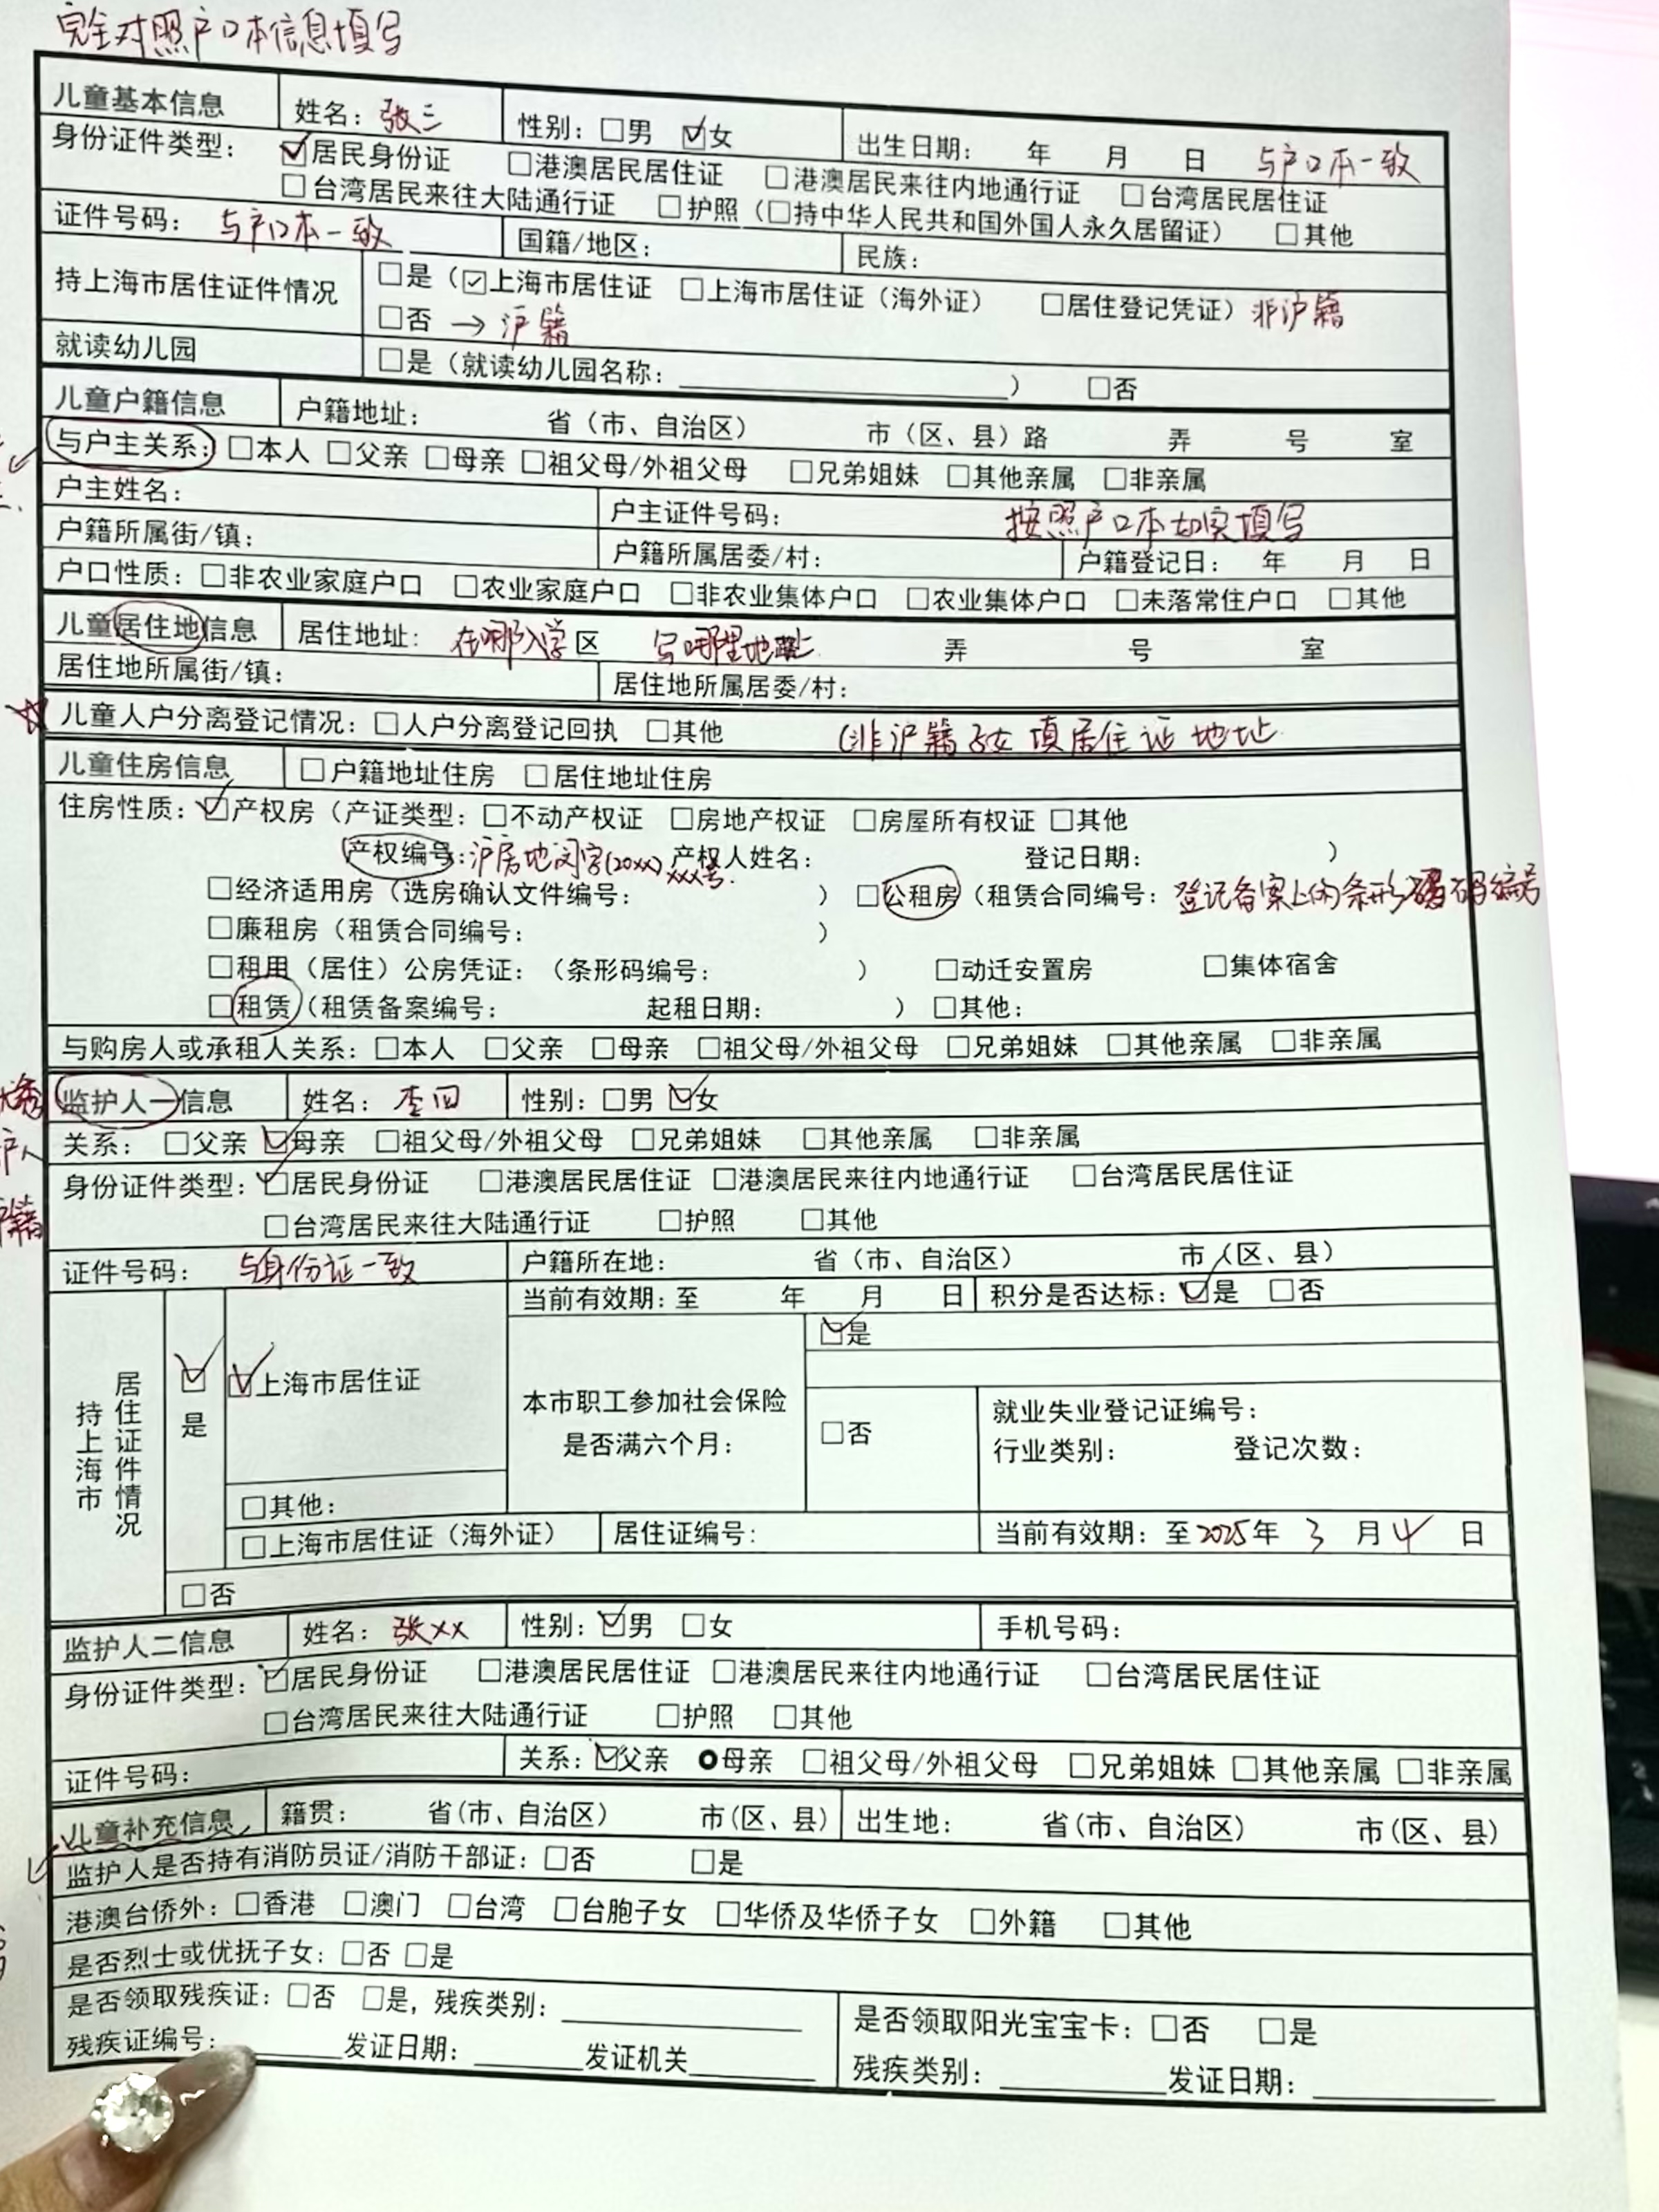 完全对照户口本信息填写
儿童基本信息 姓名：张三 性别：□男 ☑女 出生日期： 年 月 日 与户口本一致
身份证件类型：☑居民身份证 □港澳居民居住证 □港澳居民来往内地通行证 □台湾居民居住证
□台湾居民来往大陆通行证 □护照（□持中华人民共和国外国人永久居留证） □其他
证件号码：与户口本一致 国籍/地区： 民族：
持上海市居住证件情况 □是（☑上海市居住证 □上海市居住证（海外证） □居住登记凭证）非沪籍
□否 → 沪籍
就读幼儿园 □是（就读幼儿园名称：____________） □否
儿童户籍信息 户籍地址： 省（市、自治区） 市（区、县）路 弄 号 室
与户主关系：□本人 □父亲 □母亲 □祖父母/外祖父母 □兄弟姐妹 □其他亲属 □非亲属
户主姓名： 户主证件号码： 按照户口本如实填写
户籍所属街/镇： 户籍所属居委/村： 户籍登记日： 年 月 日
户口性质：□非农业家庭户口 □农业家庭户口 □非农业集体户口 □农业集体户口 □未落常住户口 □其他
儿童居住地信息 居住地址： 在哪入学区 写哪里地址 弄 号 室
居住地所属街/镇： 居住地所属居委/村：
☆儿童人户分离登记情况：□人户分离登记回执 □其他 (非沪籍子女填居住证地址
儿童住房信息 □户籍地址住房 □居住地址住房
住房性质：☑产权房（产证类型：□不动产权证 □房地产权证 □房屋所有权证 □其他
产权编号：沪房地闵字(20xx)xxx号. 产权人姓名： 登记日期： ）
□经济适用房（选房确认文件编号： ） □公租房（租赁合同编号：登记备案上的条形码编号
□廉租房（租赁合同编号： ）
□租用（居住）公房凭证：（条形码编号： ） □动迁安置房 □集体宿舍
□租赁（租赁备案编号： 起租日期： ） □其他：
与购房人或承租人关系：□本人 □父亲 □母亲 □祖父母/外祖父母 □兄弟姐妹 □其他亲属 □非亲属
监护人一信息 姓名：李四 性别：□男 ☑女
关系：□父亲 ☑母亲 □祖父母/外祖父母 □兄弟姐妹 □其他亲属 □非亲属
身份证件类型：☑居民身份证 □港澳居民居住证 □港澳居民来往内地通行证 □台湾居民居住证
□台湾居民来往大陆通行证 □护照 □其他
证件号码：与身份证一致 户籍所在地： 省（市、自治区） 市（区、县）
持上海市居住证件情况 ☑是 ☑上海市居住证 当前有效期：至 年 月 日 积分是否达标：☑是 □否
本市职工参加社会保险是否满六个月： ☑是
□否 就业失业登记证编号：
行业类别： 登记次数：
□其他：
□上海市居住证（海外证） 居住证编号： 当前有效期：至2025年3月4日
□否
监护人二信息 姓名：张xx 性别：☑男 □女 手机号码：
身份证件类型：☑居民身份证 □港澳居民居住证 □港澳居民来往内地通行证 □台湾居民居住证
□台湾居民来往大陆通行证 □护照 □其他
证件号码： 关系：☑父亲 ○母亲 □祖父母/外祖父母 □兄弟姐妹 □其他亲属 □非亲属
儿童补充信息 籍贯： 省(市、自治区） 市(区、县) 出生地： 省(市、自治区） 市(区、县)
监护人是否持有消防员证/消防干部证：□否 □是
港澳台侨外：□香港 □澳门 □台湾 □台胞子女 □华侨及华侨子女 □外籍 □其他
是否烈士或优抚子女：□否 □是
是否领取残疾证：□否 □是，残疾类别：________ 是否领取阳光宝宝卡：□否 □是
残疾证编号：______发证日期：______发证机关______ 残疾类别：________发证日期：________